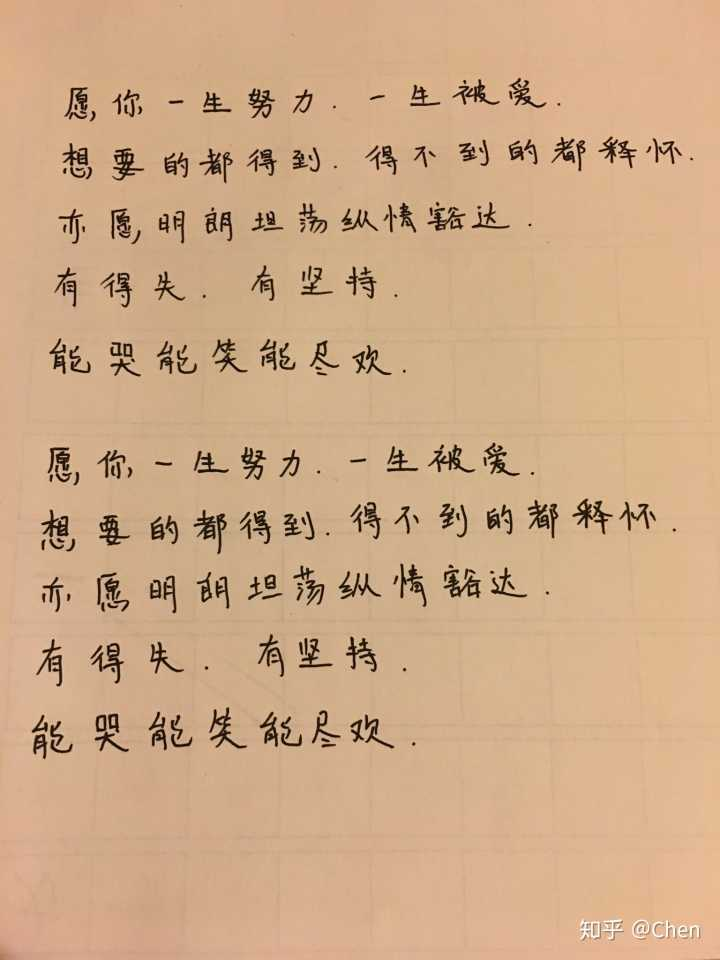 愿你一生努力.一生被爱.
想要的都得到.得不到的都释怀.
亦愿明朗坦荡纵情豁达.
有得失.有坚持.
能哭能笑能尽欢.
愿你一生努力.一生被爱.
想要的都得到.得不到的都释怀.
亦愿明朗坦荡纵情豁达.
有得失.有坚持.
能哭能笑能尽欢.
知乎 @Chen